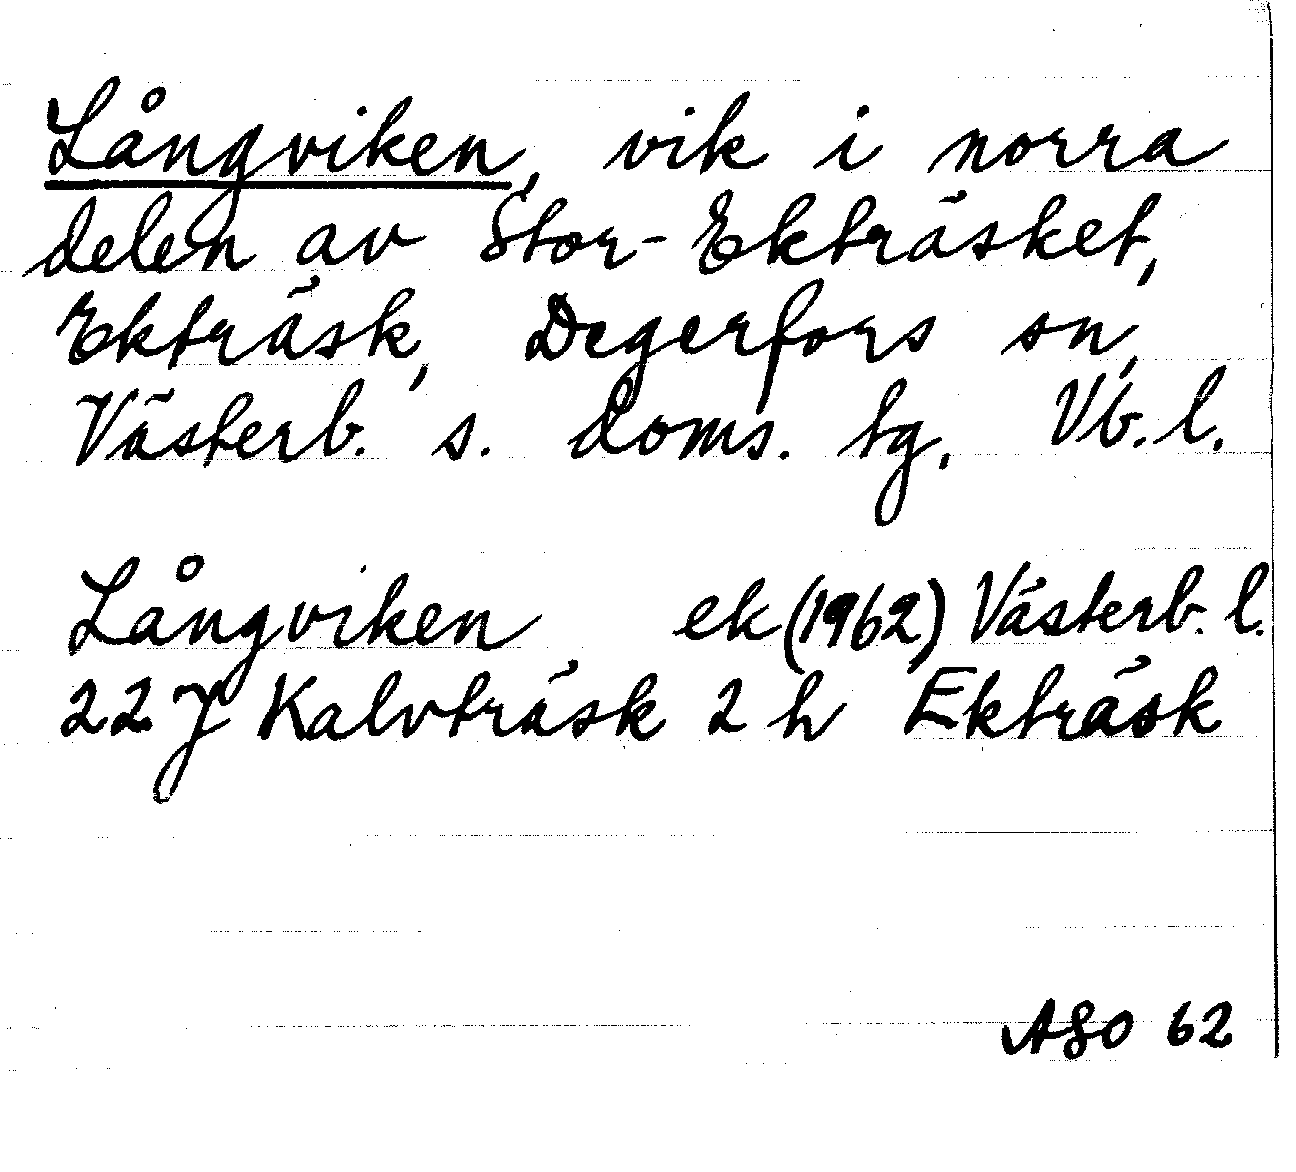 Långviken, vik i norra
delen av Stor-Ekträsket,
Ekträsk, Degerfors sn,
Västerb. s. doms. tg. Vb. l.
Långviken ek (1962) Västerb. l.
22 J Kalvträsk 2 h Ekträsk
ASO 62